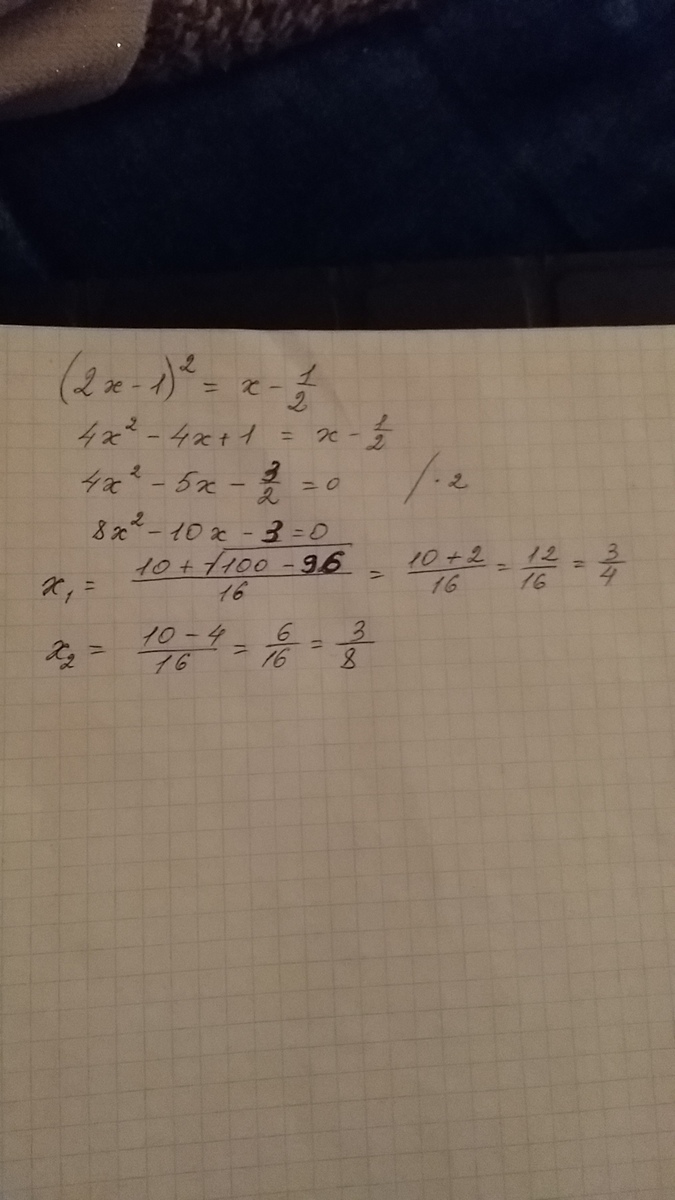 (2x-1)² = x - 1/2
4x² - 4x + 1 = x - 1/2
4x² - 5x - 3/2 = 0 /·2
8x² - 10x - 3 = 0
x₁ = (10 + √(100 - 96))/16 = (10 + 2)/16 = 12/16 = 3/4
x₂ = (10 - 4)/16 = 6/16 = 3/8